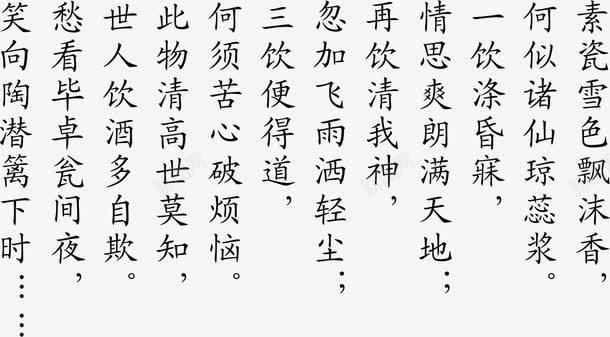 素瓷雪色飘沫香，
何似诸仙琼蕊浆。
一饮涤昏寐，
情思爽朗满天地；
再饮清我神，
忽加飞雨洒轻尘；
三饮便得道，
何须苦心破烦恼。
此物清高世莫知，
世人饮酒多自欺。
愁看毕卓瓮间夜，
笑向陶潜篱下时……